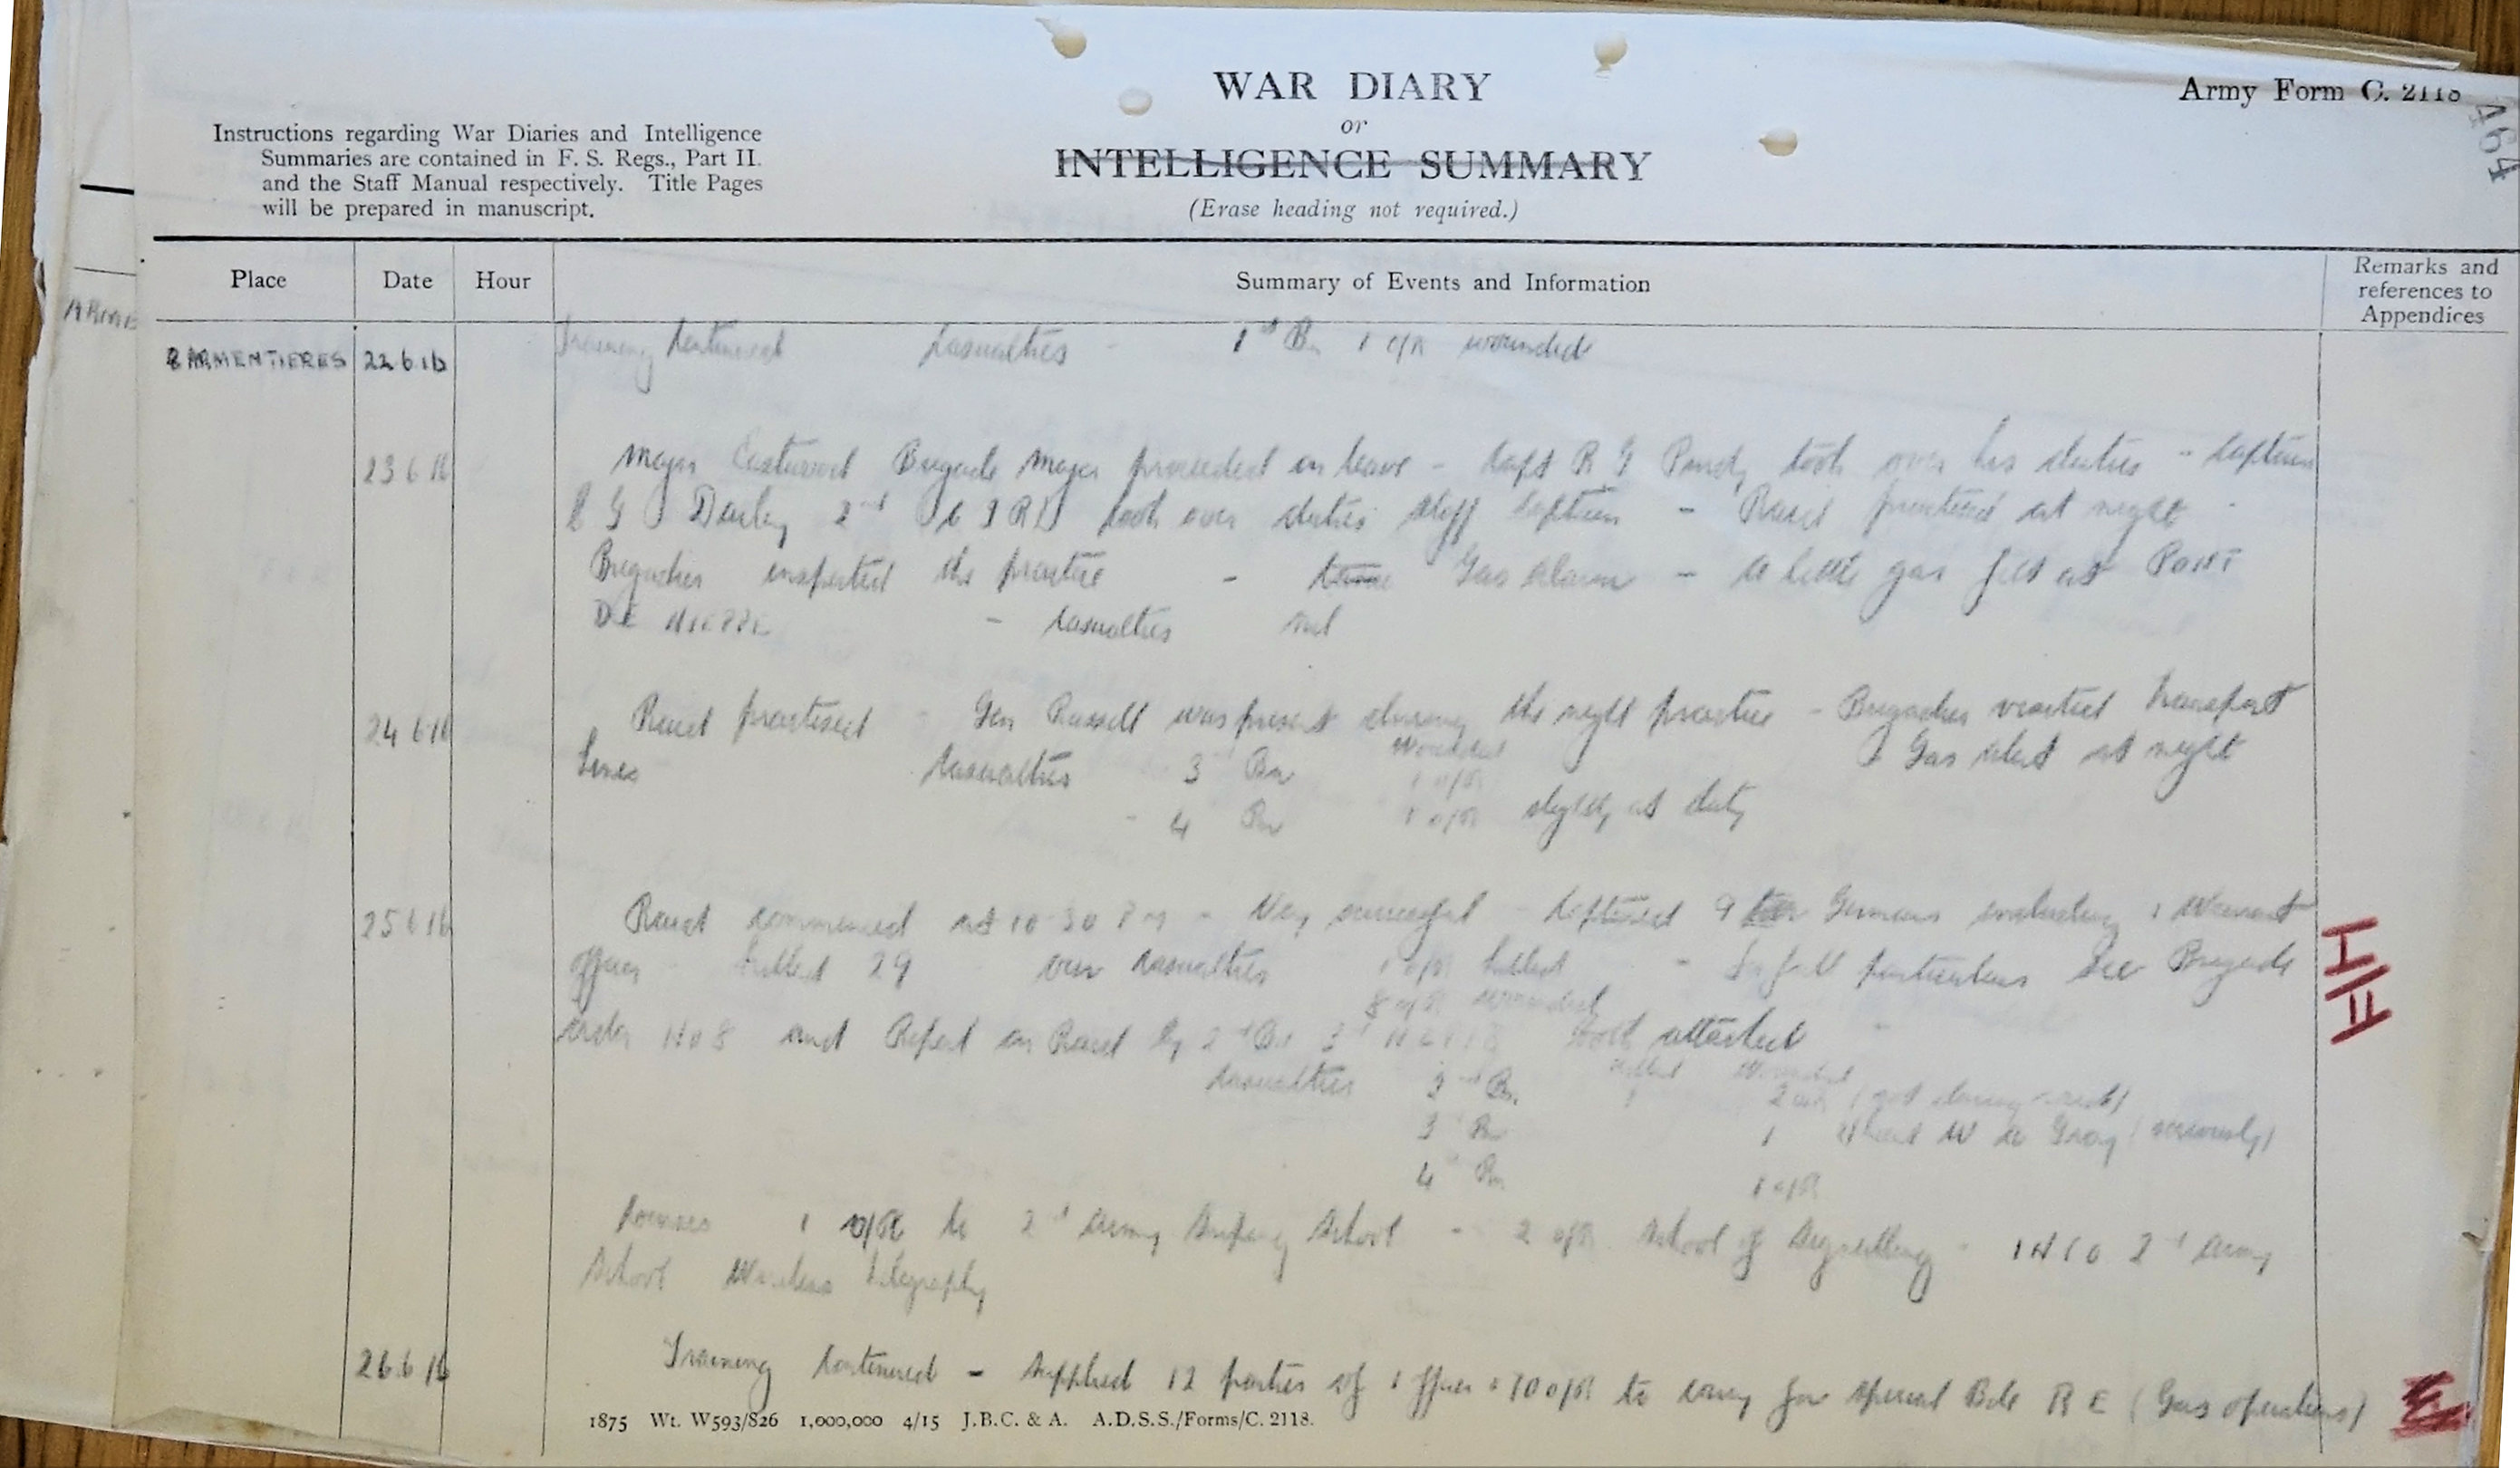 WAR DIARY
or
INTELLIGENCE SUMMARY
(Erase heading not required.)
Army Form C. 2118
464
Instructions regarding War Diaries and Intelligence
Summaries are contained in F. S. Regs., Part II.
and the Staff Manual respectively. Title Pages
will be prepared in manuscript.
Place Date Hour Summary of Events and Information Remarks and references to Appendices
ARMENTIERES 22 6 16 Training continued Casualties - 1st Bn 1 O/R wounded
23 6 16 Major Eastwood Brigade Major proceeded on leave - Capt R G Purdy took over his duties - Captain
G Darby 2nd took over duties Staff Captain - Raid practised at night -
Brigadier inspected the practice - Gas Alarm - a little gas felt at PONT
DE NIEPPE - Casualties nil
24 6 16 Raid practised - Gen Russell was present during the night practice - Brigadier visited transport
lines Gas alert at night
Casualties 3 Bn Wounded 1 O/R
- 4 Bn 1 O/R slightly at duty
25 6 16 Raid commenced at 10-30 Pm - Very successful - Captured 9 Germans including 1 Warrant
officer - killed 29 our casualties 1 O/R killed - For full particulars see Brigade
8 O/R wounded
order No 8 and Report on Raid by 2nd Bn 3rd NZRB both attached
Casualties killed Wounded
2nd Bn. 1 2 O/R (not during raid)
3 Bn 1 W A Gray (seriously)
4th Bn 1 O/R
Courses 1 O/R to 2nd Army Sniping School - 2 O/R School of Signalling - 1 NCO 2nd Army
School Wireless Telegraphy
H/H
26 6 16 Training continued - Supplied 12 parties of 1 officer + O/R to carry for special Bde R E (Gas operations)
1875 Wt. W593/826 1,000,000 4/15 J.B.C. & A. A.D.S.S./Forms/C. 2118.